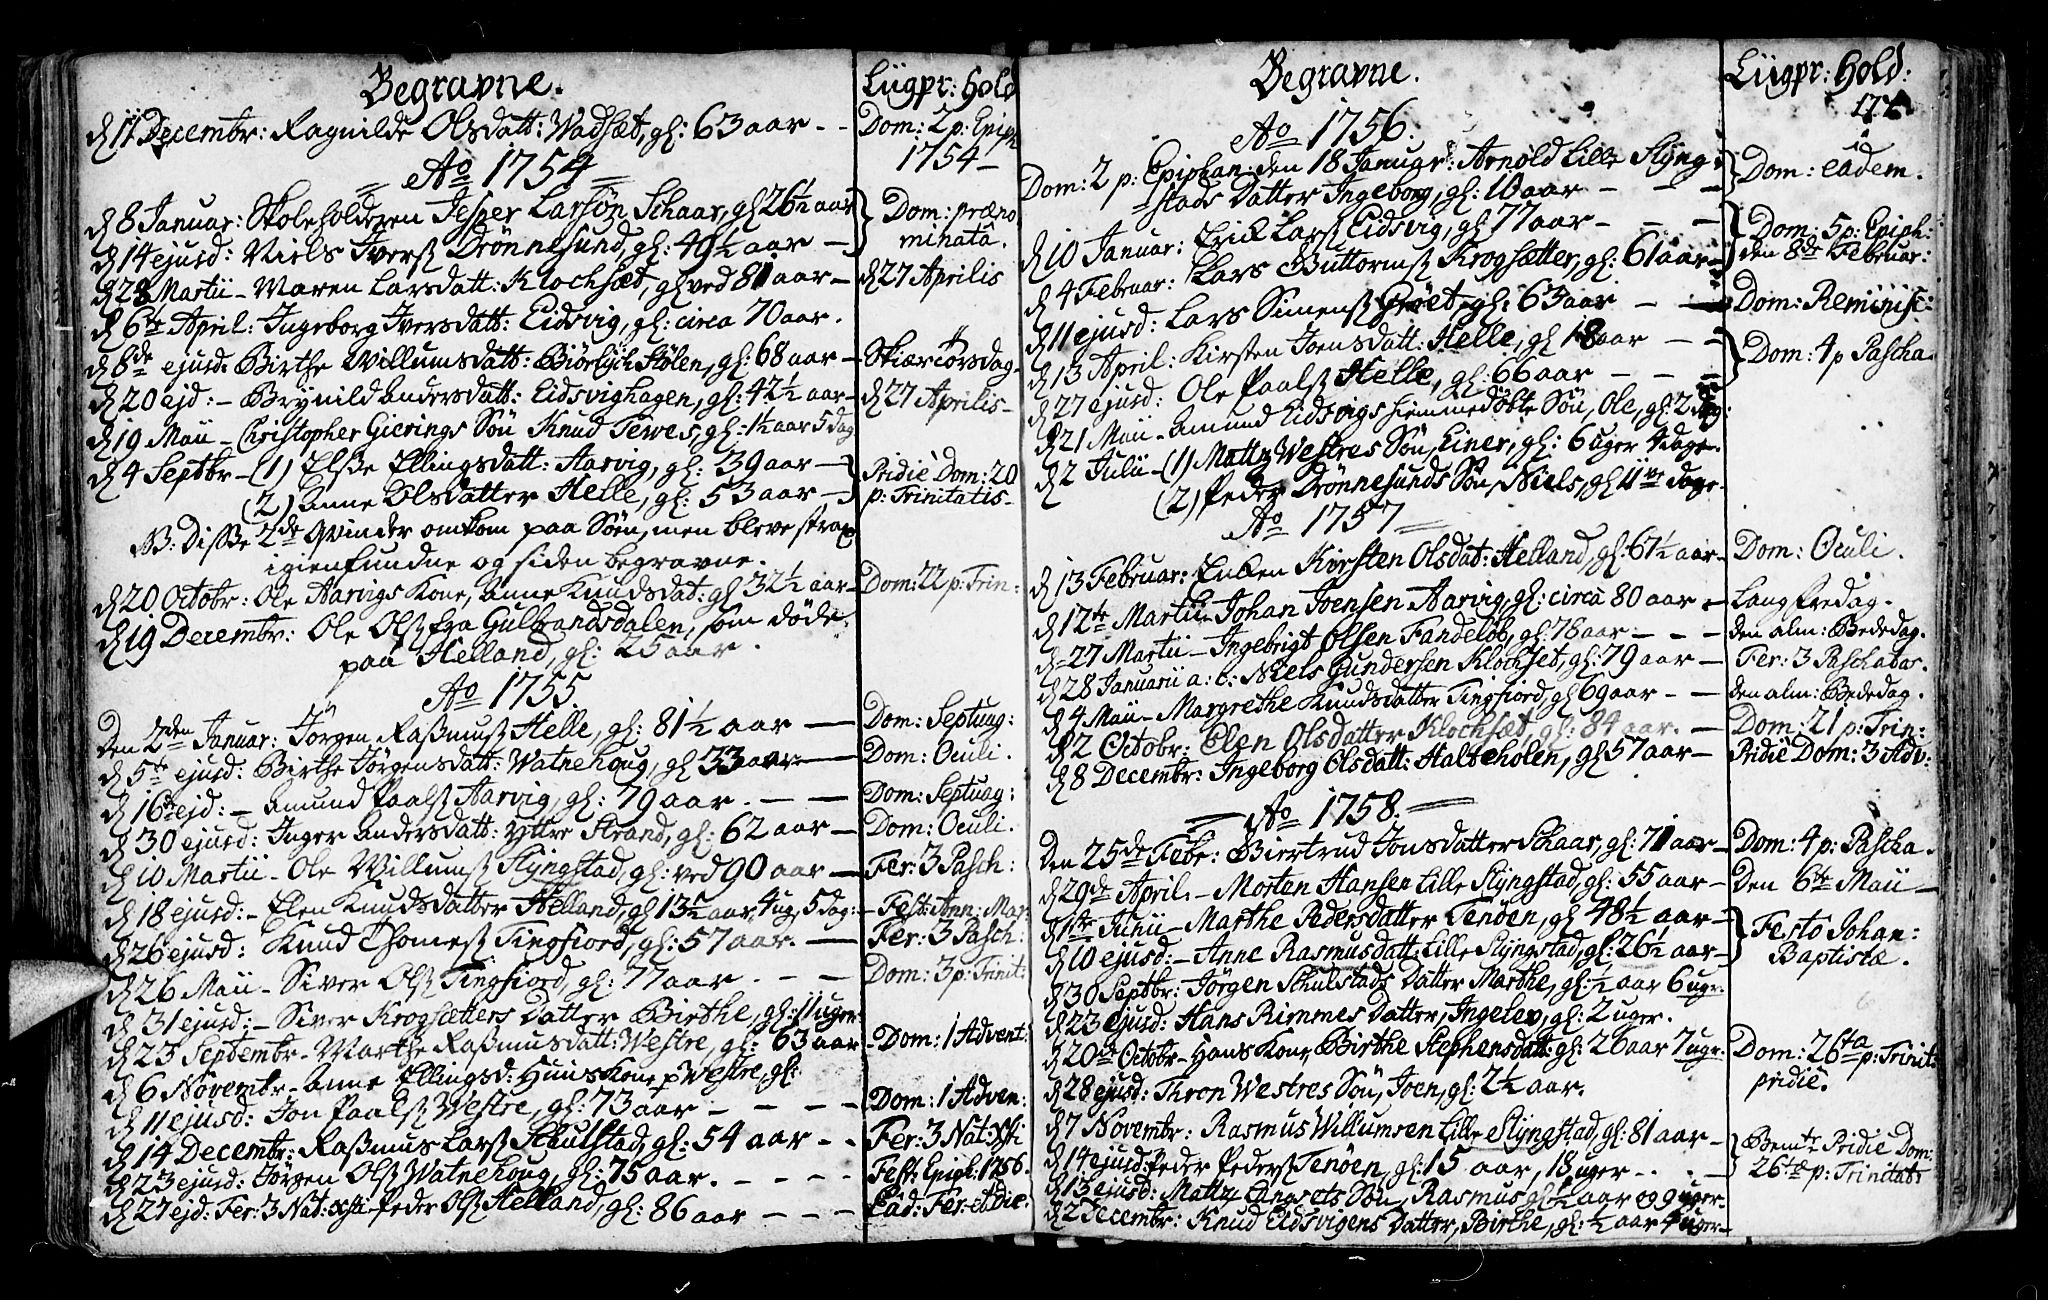 Begravne.
Liigpr: hold
d 11 Decembr: Ragnilde Olsdatt: Wadsæt, gl: 63 aar - -
Dom: 2 p: Epiph
1754 -
Ao 1754
d 8 Januar: Skoleholderen Jesper Larsøn Schaar, gl 26½ aar
Dom: præno
d 14 ejusd: Niels Iverss Drønnesund, gl: 49½ aar -
minatâ.
d 28 Martii - Maren Larsdatt: Klochsæt, gl ved 81 aar -
d 27 Aprilis
d 6te April: Ingeborg Iversdatt: Eidsvig, gl: circa 70 aar.
d 8de ejusd: Birthe Willumsdatt: Biørlich Stølen, gl: 68 aar -
Skiærtorsdag -
d 20 ejd: - Brynild Andersdatt: Eidsvighagen, gl: 42½ aar -
d 27 Aprilis -
d 19 Maii - Christopher Gierings Søn Knud Tewes, gl: 1½ aar 5 dag
d 4 Septbr - (1) Elsse Ellingsdatt: Aarvig, gl: 39 aar -
Pridie Dom: 20
(2) Anne Olsdatter Helle, gl: 53 aar -
p: Trinitatis -
NB: Disse 2de Qvinder omkom paa Søn, men bleve strax
igienfundne og siden begravne.
d 20 Octobr: Ole Aarvigs Kone, Anne Knudsdat: gl 32½ aar -
Dom: 22 p: Trin:
d 19 Decembr: Ole Olss fra Gulbrandsdalen, som døde
paa Helland, gl: 25 aar.
Ao 1755
Den 2den Januar: Jørgen Rassmuss Helle, gl: 81½ aar -
Dom: Septuag:
d 5te ejusd: Birthe Jørgensdatt: Watnehoug, gl 33 aar -
Dom: Oculi.
d 16te ejd: - Amund Paalss Aarvig, gl: 79 aar. - -
Dom: Septuag:
d 30 ejusd: Inger Andersdatt: Yttre Strand, gl: 62 aar -
Dom: Oculi.
d 10 Martii - Ole Willumss Slyngstad, gl: ved 90 aar -
Fer: 3 Pasch:
d 18 ejusd: - Elen Knudsdatter Helland, gl 13½ aar, 4 ug, 5 dag: -
Fest: Ann: Mar
d 26 ejusd: Knud Thomess Tingfiord, gl: 57 aar. -
Fer: 3 Pasch:
d 26 Maii - Siver Olss Tingfiord, gl: 77 aar. - -
Dom: 3 p: Trinit:
d 31 ejusd: - Siver Krogsætters Datter Birthe, gl: 11 uger
d 23 Septembr - Marthe Rassmusdatt: Westre, gl: 63 aar
- Dom: 1 Advent:
d 6 Novembr - Anne Ellingsd: Huus Kone p Westre, gl:
d 11 ejusd: Jon Paalss Westre, gl: 73 aar - - - -
Dom: 1 Adven:
d 14 Decembr: Rassmus Larss Schulstad, gl: 54 aar - -
Fer: 3 Nat: Xsti
d 23 ejusd: Jørgen Olss Watnehoug, gl: 75 aar. - - - -
Fest: Epiph: 1756.
d 27 ejd: Fer: 3 Nat: Xsti - Peder Olss Helland, gl: 86 aar - - -
Ead: Fer: et die.
Begravne.
Liigpr: hold:
Ao 1756.
Dom: 2 p: Epiphan: den 18 Januar: Arnold Lille Slyng-
Dom: eâdem.
stads Datter Ingeborg, gl: 10 aar - - -
d 10 Januar: Erick Larss Eidsvig, gl 77 aar - - -
Dom: 5 p: Epiph:
d 4 Februar: Lars Buttormss Krogsætter, gl: 61 aar -
den 8de Februar:
d 11 ejusd: Lars Simenss Grøet, gl: 63 aar - -
Dom: Reminisc:
d 13 April: Kirsten Joensdatt: Helle, gl 18 aar - -
Dom: 4 p Pascha.
d 27 ejusd: Ole Paalss Helle, gl: 66 aar - - -
d 21 Maii - Amund Eidsvigs hiemmedøbte Søn, Ole, gl: 2 dag:
d 2 Julii - (1) Matz Westres Søn, Einer, gl: 6 uger 4 dage.
(2) Peder Drønnesunds Søn, Niels, gl 11 dage.
Ao 1757
d 13 Februar: Enken Kirsten Olsdat: Helland, gl: 67½ aar -
Dom: Oculi.
d 12te Martii - Johan Joensen Aarvig, gl: circa 80 aar -
Langfredag.
d 27 Martii - Ingebrigt Olssen Fandeløb, gl: 78 aar - - -
den alm: Bededag.
d 28 Januarii a: c: Niels Gundersen Klochset, gl: 79 aar -
Fer: 3 Paschatos.
d 4 Maii - Margrethe Knudsdatter Tingfiord, gl 69 aar - -
den alm: Bededag.
d 2 Octobr: Elen Olsdatter Klochsæt, gl: 84 aar. -
Dom: 21 p: Trin:
d 8 Decembr: Ingeborg Olsdatt: Halteholen, gl 57 aar -
Pridie Dom: 3 Adv:
Ao 1758.
Den 25de Febr: Biertrud Jonsdatter Schaar, gl: 71 aar -
Dom: 4 p: Pascha.
d 29de April. - Morten Hansen Lille Slyngstad, gl: 55 aar -
Den 6te Maii -
d 1ste Junii - Marthe Pedersdatter Tenøen, gl 48½ aar -
Festo Johan:
d 10 ejusd: - Anne Rasmusdatt: Lille Slyngstad, gl: 26½ aar -
Baptistæ.
d 30 Septbr: Jørgen Schulstads Datter Marthe, gl: ½ aar 6 ugr.
d 23 ejusd: Hans Rimmes Datter, Ingelev, gl: 2 uger.
d 20de Octobr - Hans Kone Birthe Stephensdatt: gl: 26 aar 7 ugr.
Dom: 26ta p: Trinit:
d 28 ejusd: Thron Westres Søn, Joen, gl: 2½ aar.
pridie.
d 7 Novembr: Rasmus Willumsen Lille Slyngstad, gl: 81 aar -
d 14 ejusd: Peder Pederss Tenøen, gl: 15 aar, 18 uger - - -
Bemte Pridie Dom:
d 13 ejusd: Matz Søn, Rasmus gl ½ aar og 9 uger
26tæ p: Trinitat:
d 2 Decembr: Knud Eidsvigens Datter, Birthe, gl: ½ aar 4 uger -